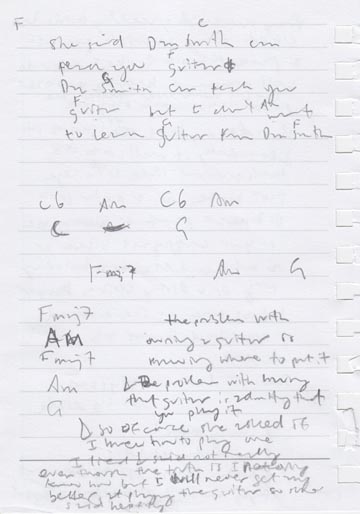 F C
She said Dan Smith can
teach you guitar
F
Dan Smith can teach you
G
guitar but I don't want
F Am
to learn guitar from Dan Smith
G F
C6 Am C6 Am
C G
Fmaj7 Am G
Fmaj7 the problem with
Am owning a guitar is
Fmaj7 knowing where to put it
Am problem with having
G that guitar is admitting that
you play it
so of course she asked if
I knew how to play one
I lied & said not really
even though the truth is I not only
know how but I will never get any
better at playing the guitar so when
said